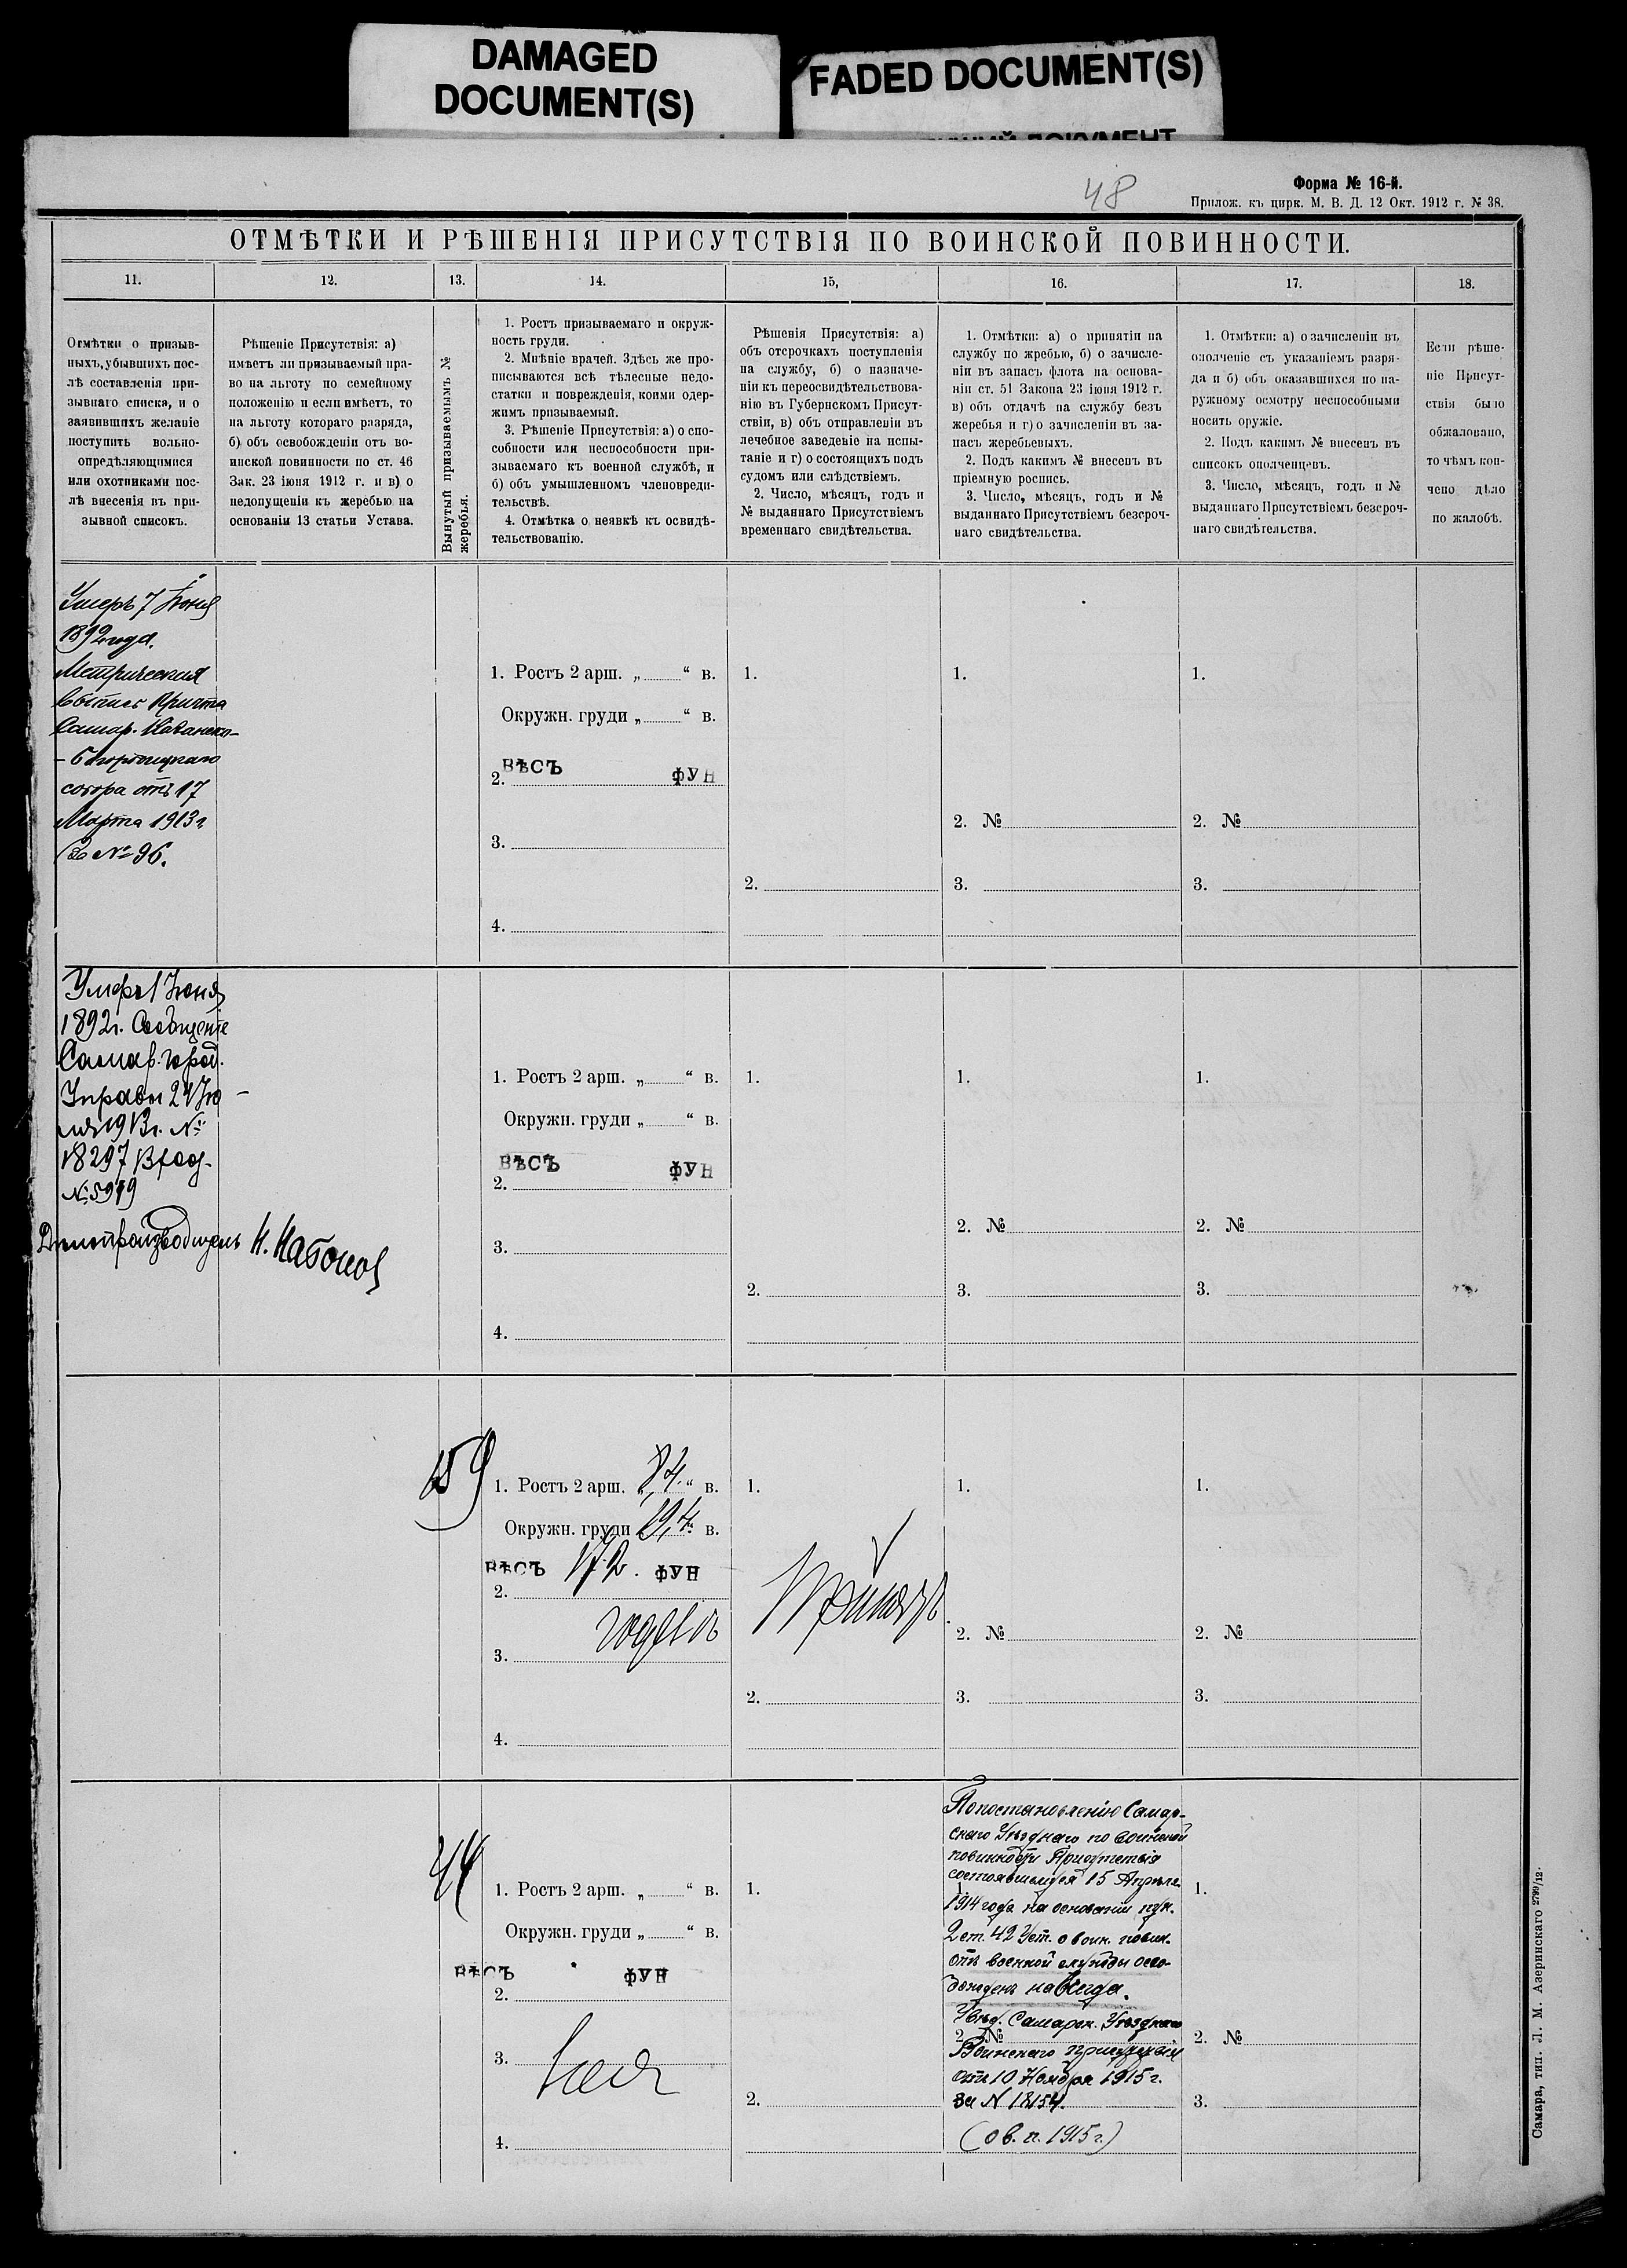 DAMAGED
DOCUMENT(S)
FADED DOCUMENT(S)
48
Форма № 16-й.
Прилож. къ цирк. М. В. Д. 12 Окт. 1912 г. № 38.
ОТМѢТКИ И РѢШЕНІЯ ПРИСУТСТВІЯ ПО ВОИНСКОЙ ПОВИННОСТИ.
11.
12.
13.
14.
15,
16.
17.
18.
Отмѣтки о призыв-
ныхъ, убывшихъ пос-
лѣ составленія при-
зывнаго списка, и о
заявившихъ желаніе
поступить вольно-
опредѣляющимися
или охотниками пос-
лѣ внесенія въ при-
зывной списокъ.
Рѣшеніе Присутствія: а)
имѣетъ ли призываемый пра-
во на льготу по семейному
положенію и если имѣетъ, то
на льготу котораго разряда,
б) объ освобожденіи отъ во-
инской повинности по ст. 46
Зак. 23 іюня 1912 г. и в) о
недопущеніи къ жеребью на
основаніи 13 статьи Устава.
Вынутый призываемымъ №
жеребья.
1. Ростъ призываемаго и окруж-
ность груди.
2. Мнѣніе врачей. Здѣсь же про-
писываются всѣ тѣлесные недо-
статки и поврежденія, коими одер-
жимъ призываемый.
3. Рѣшеніе Присутствія: а) о спо-
собности или неспособности при-
зываемаго къ военной службѣ, и
б) объ умышленномъ членовреди-
тельствѣ.
4. Отмѣтка о неявкѣ къ освидѣ-
тельствованію.
Рѣшенія Присутствія: а)
объ отсрочкахъ поступленія
на службу, б) о назначе-
ніи къ переосвидѣтельствова-
нію въ Губернскомъ Присут-
ствіи, в) объ отправленіи въ
лечебное заведеніе на испы-
таніе и г) о состоящихъ подъ
судомъ или слѣдствіемъ.
2. Число, мѣсяцъ, годъ и
№ выданнаго Присутствіемъ
временнаго свидѣтельства.
1. Отмѣтки: а) о принятіи на
службу по жребью, б) о зачисле-
ніи въ запасъ флота на основа-
ніи ст. 51 Закона 23 іюня 1912 г.
в) объ отдачѣ на службу безъ
жеребья и г) о зачисленіи въ за-
пасъ жеребьевыхъ.
2. Подъ какимъ № внесенъ въ
пріемную роспись.
3. Число, мѣсяцъ, годъ и №
выданнаго Присутствіемъ безсроч-
наго свидѣтельства.
1. Отмѣтки: а) о зачисленіи въ
ополченіе съ указаніемъ разря-
да и б) объ оказавшихся по на-
ружному осмотру неспособными
носить оружіе.
2. Подъ какимъ № внесенъ въ
списокъ ополченцевъ.
3. Число, мѣсяцъ, годъ и №
выданнаго Присутствіемъ безсроч-
наго свидѣтельства.
Если рѣше-
ніе Присут-
ствія было
обжаловано,
то чѣмъ кон-
чено дѣло
по жалобѣ.
Умеръ 7 Іюня
1892 года.
Метрическая
выпись Причта
Самар. Каѳедр-
соборa отъ 17
Марта 1913 г
за № 96.
1. Ростъ 2 арш. „ “ в.
Окружн. груди „ “ в.
ВѢСЪ ФУН
2.
3.
4.
1.
2.
1.
2. №
3.
1.
2. №
3.
Умеръ 1 Іюня
1892 г. Сообщеніе
Самар. город.
Управы 24 Ію-
ля 1913 г. №
18297 Вход.
№ 5919
Дѣлопроизводитель Н. Набоков
1. Ростъ 2 арш. „ “ в.
Окружн. груди „ “ в.
ВѢСЪ ФУН
2.
3.
4.
1.
2.
1.
2. №
3.
1.
2. №
3.
159
1. Ростъ 2 арш. 8,4. “ в.
Окружн. груди 19,4 в.
ВѢСЪ 172. ФУН
2.
3. годенъ
4.
1.
Принятъ.
2.
1.
2. №
3.
1.
2. №
3.
44
1. Ростъ 2 арш. „ “ в.
Окружн. груди „ “ в.
ВѢСЪ ФУН
2.
3.
4.
1.
2.
По постановленію Самар-
скаго Уѣзднаго по воинской
повинности Присутствія
состоявшемуся 15 Апрѣля
1914 года на основаніи пун.
2 ст. 42 Уст. о воин. повин.
отъ военной службы осво-
божденъ навсегда.
Увѣд. Самарск. Уѣзднаго
2. №
Воинскаго присутствія
отъ 10 Ноября 1915 г.
за N 18154.
(о в. п. 1915 г.)
1.
2. №
3.
Самара, тип. Л. М. Азеринскаго 2799/12.